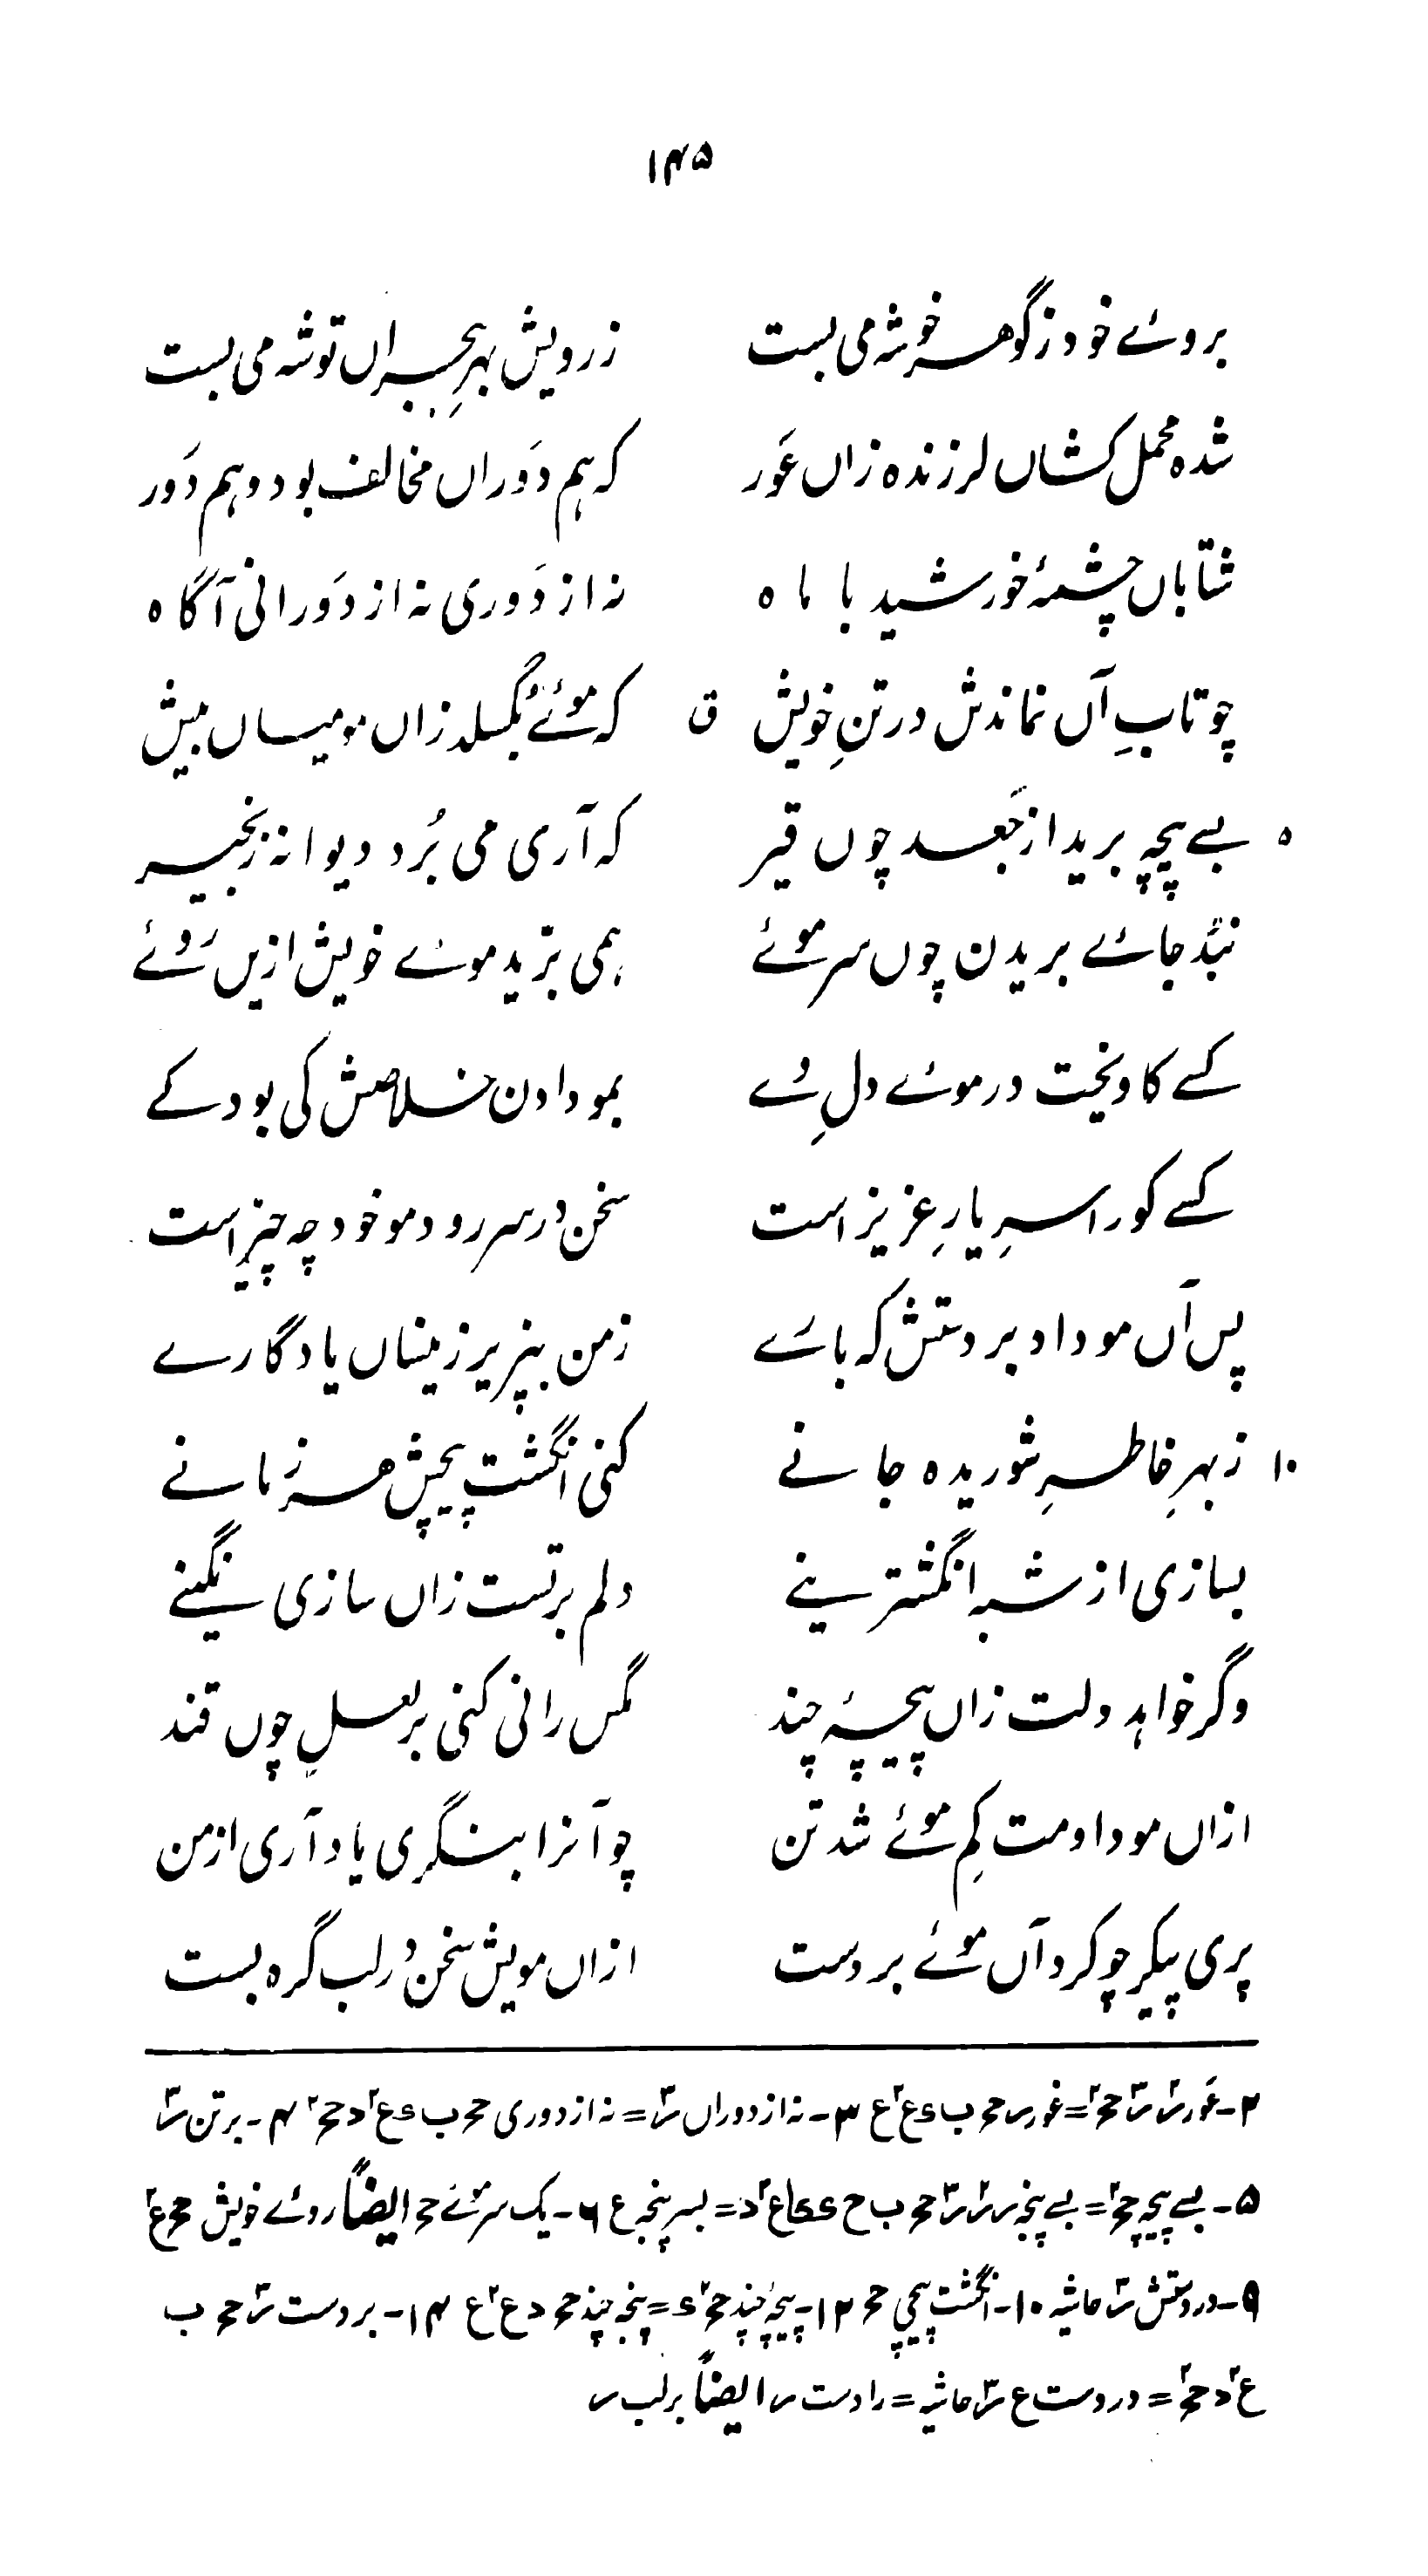 ۱۴۵
بروئے خود ز گوهر خوشه می بست    ز رویش بهرِ هجراں توشه می بست
شده محمل کشاں لرزنده زاں غَور    که هم دَوراں مخالف بود و هم دَور
شتاباں چشمۀ خورشید با ماه    نه از دَوری نه از دَورانی آگاه
چو تابِ آں نماندش در تنِ خویش    ق    که موئے بُگسلد زاں مو میساں بیش
۵    بے پیچه برید از جَعد چوں قیر    که آری می بُرد دیوانه زنجیر
نبُد جائے بریدن چوں سر موئے    همی برّید موئے خویش ازیں رُوئے
کسے کاویخت در موئے دلِ وے    بمو دادن خلاصش کی بود کے
کسے کو را سرِ یارِ عزیز است    سخن در سر رود مو خود چه چیز است
پس آں مو داد بر دستش که بارے    ز من بپزیر زینساں یادگارے
۱۰    ز بهرِ خاطرِ شوریده جانے    کنی انگشت پیچش هر زمانے
بسازی از شبه انگشترینے    دلم بر تست زاں سازی نگینے
و گر خواهد دلت زاں پیچۀ چند    مگس رانی کنی بر لعسلِ چوں قند
ازاں مو دادمت کم موئے شد تن    چو آنرا بنگری یاد آری از من
پری پیکر چو کرد آں موئے بر دست    ازاں مویش سخن در لب گره بست
۲- غَور = غور    ۳- نه از دوراں = نه از دوری    ۴- بر تن
۵- بے پیچه = بے پنجه = بسر پنجه ع ۶- یک سر موئے ایضاً روئے خویش
۹- در دستش حاشیه ۱۰- انگشت پیچی ۱۲- پیچۀ چند = پنجه چند ۱۴- بر دست
= در دست ع حاشیه = را دست ایضاً بر لب